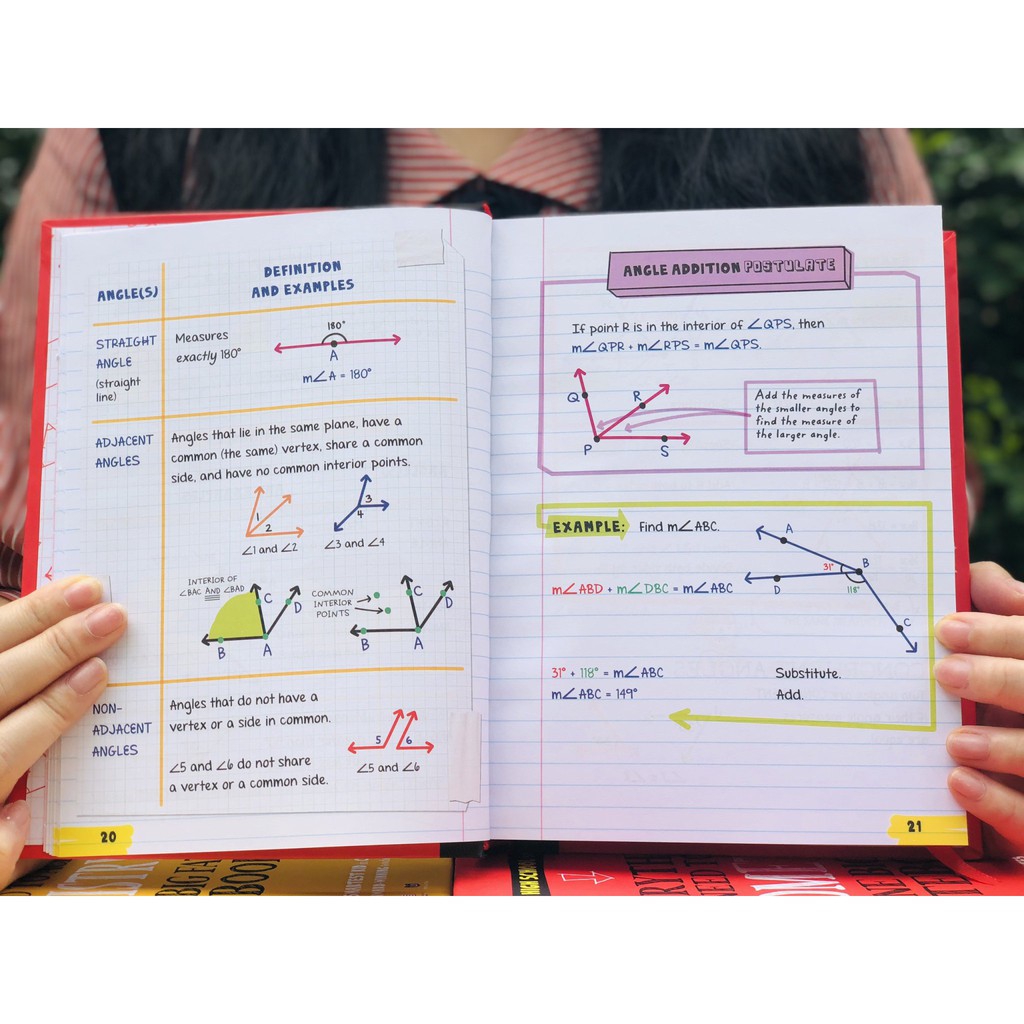 DEFINITION
AND EXAMPLES
ANGLE(S)
STRAIGHT
ANGLE
(straight
line)
Measures
exactly 180°
180°
A
m∠A = 180°
ADJACENT
ANGLES
Angles that lie in the same plane, have a
common (the same) vertex, share a common
side, and have no common interior points.
1
2
∠1 and ∠2
3
4
∠3 and ∠4
INTERIOR OF
∠BAC AND ∠BAD
C
D
B
A
COMMON
INTERIOR
POINTS
C
D
B
A
NON-
ADJACENT
ANGLES
Angles that do not have a
vertex or a side in common.
∠5 and ∠6 do not share
a vertex or a common side.
5
6
∠5 and ∠6
20
ANGLE ADDITION POSTULATE
If point R is in the interior of ∠QPS, then
m∠QPR + m∠RPS = m∠QPS.
Q
R
P
S
Add the measures of
the smaller angles to
find the measure of
the larger angle.
EXAMPLE: Find m∠ABC.
A
B
31°
D
118°
C
m∠ABD + m∠DBC = m∠ABC
31° + 118° = m∠ABC Substitute.
m∠ABC = 149° Add.
21
BIG FA
HIGH SCHO